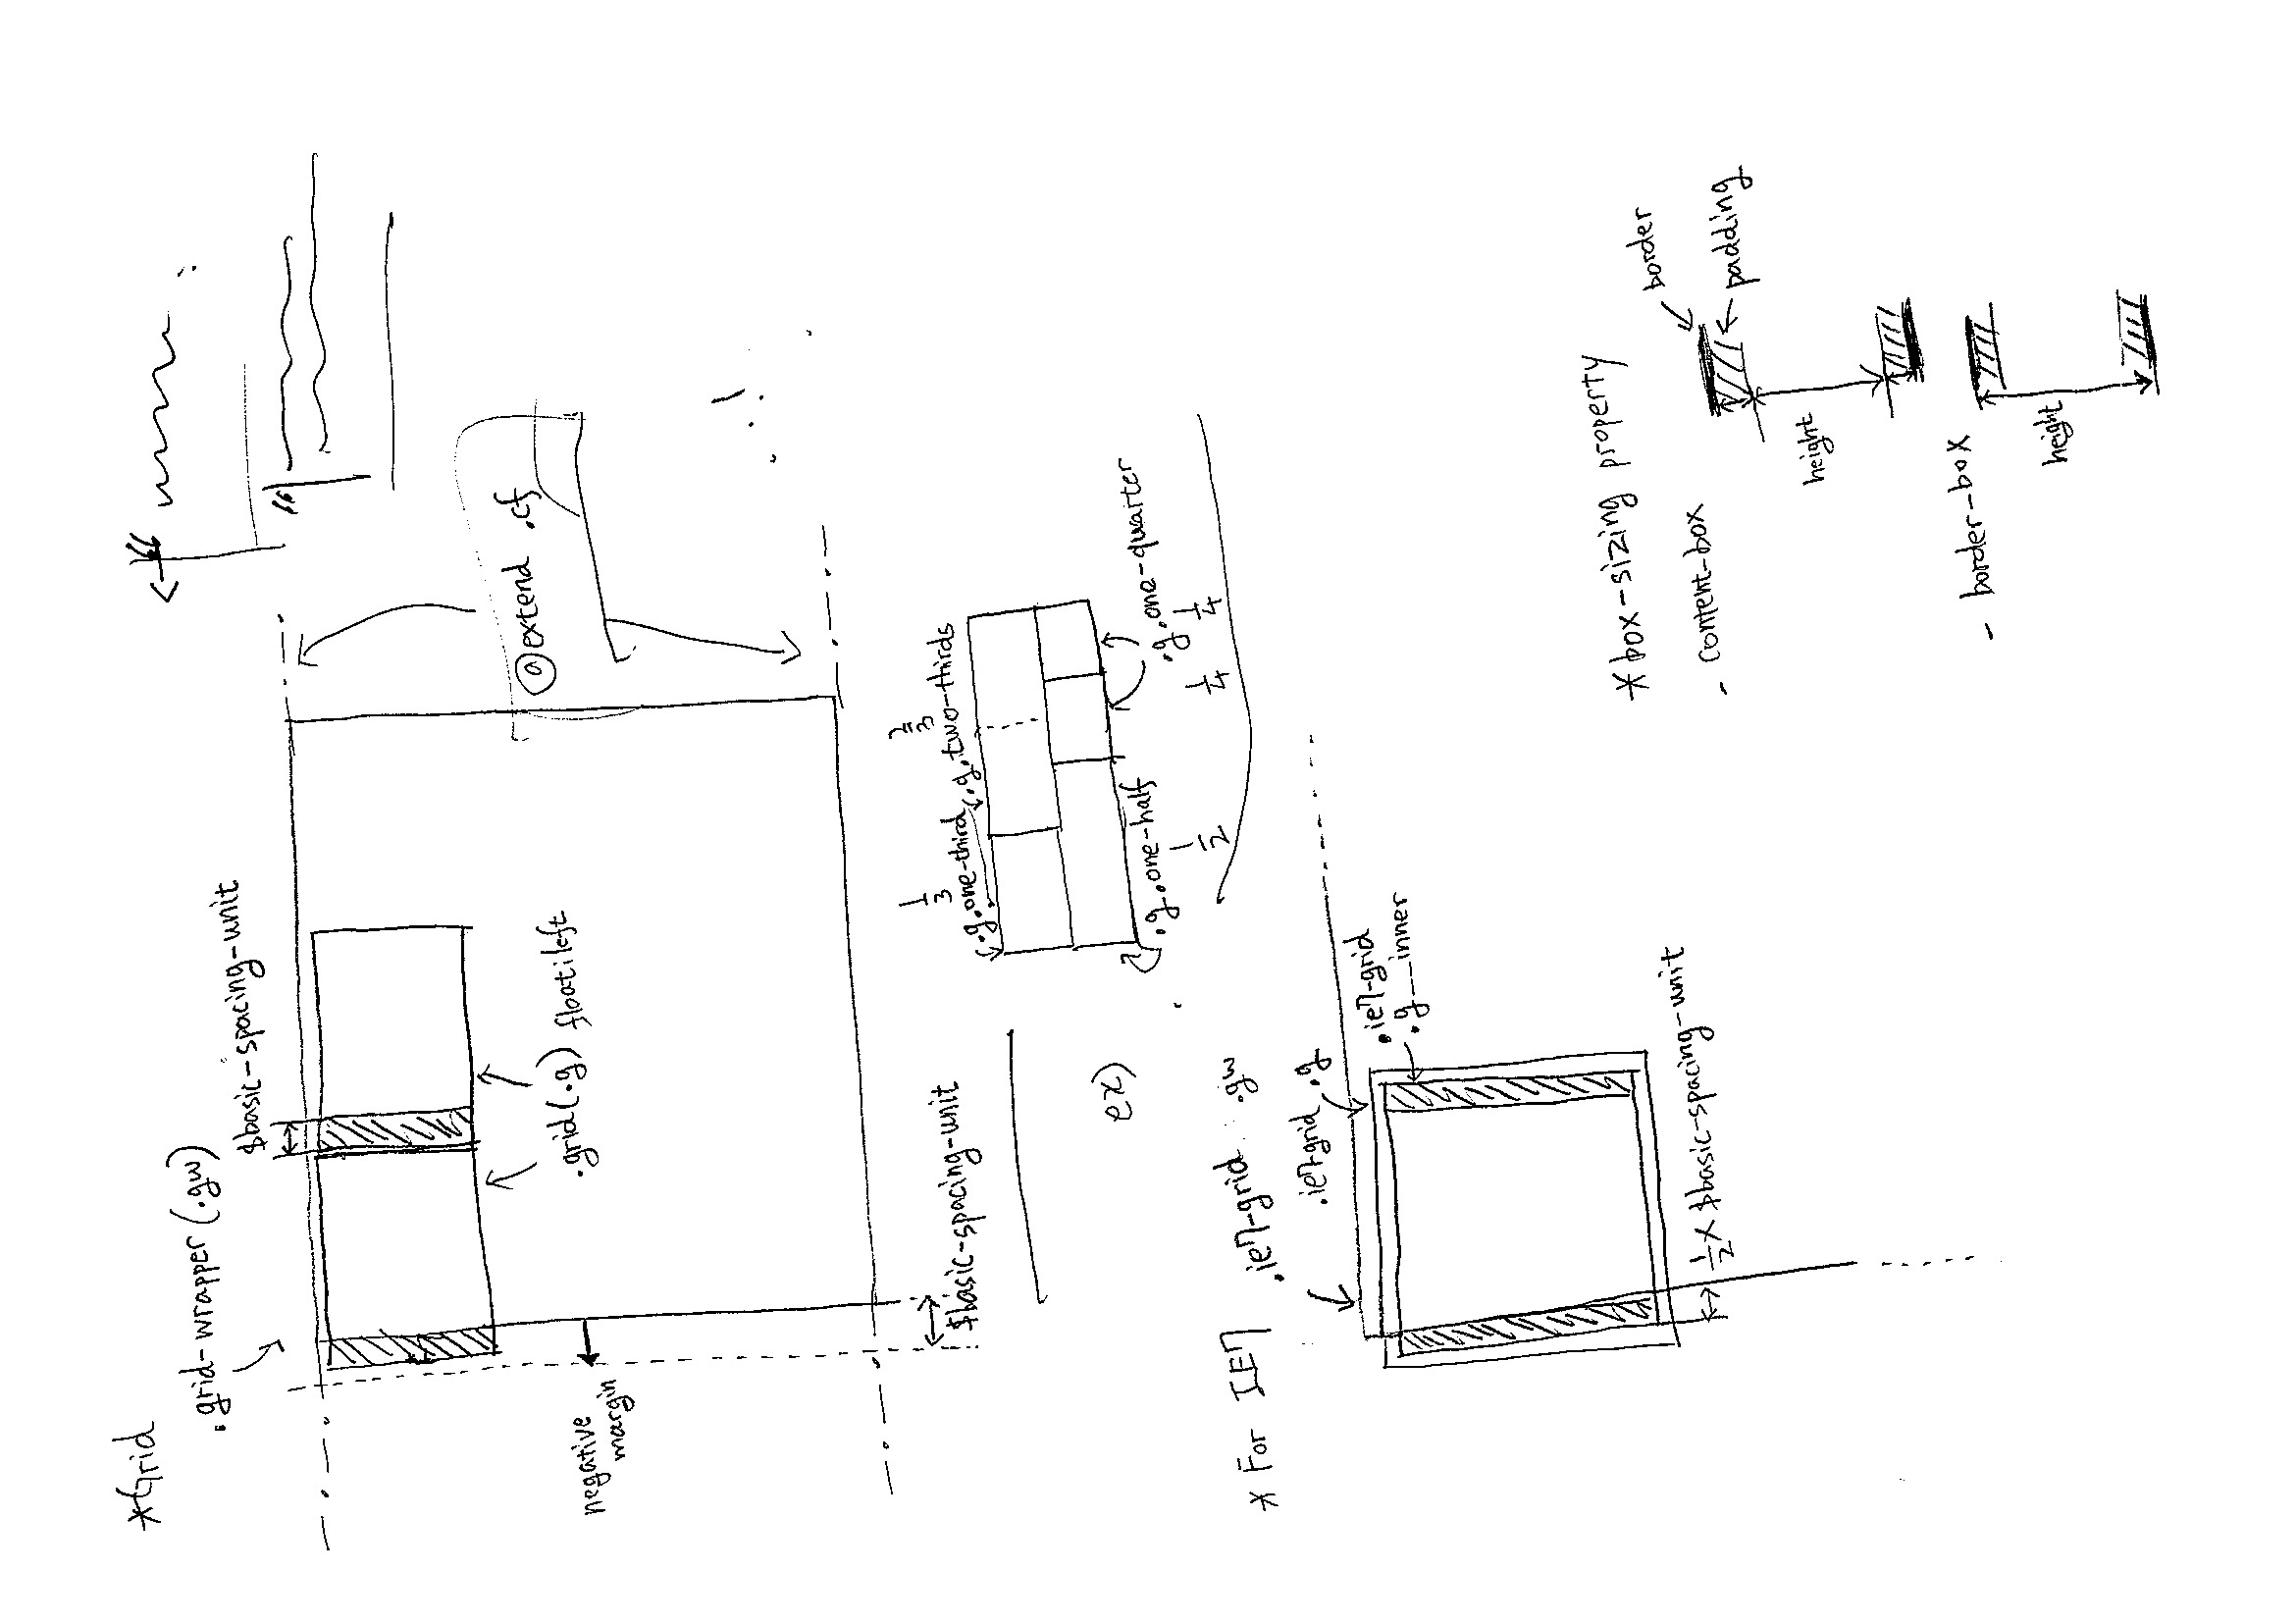 *Grid
.grid-wrapper (.gw)
$basic-spacing-unit
“
“
@extend .cf
.grid(.g) float:left
negative
margin
$basic-spacing-unit
ex)
1/3
2/3
.g.one-third
.g.two-thirds
.g.one-half
.g.one-quarter
1/2
1/4
1/4
* For IE7
.ie7-grid .gw
.ie7-grid .g
.ie7-grid
.g__inner
1/2 x $basic-spacing-unit
*box-sizing property
- content-box
border
padding
height
- border-box
height